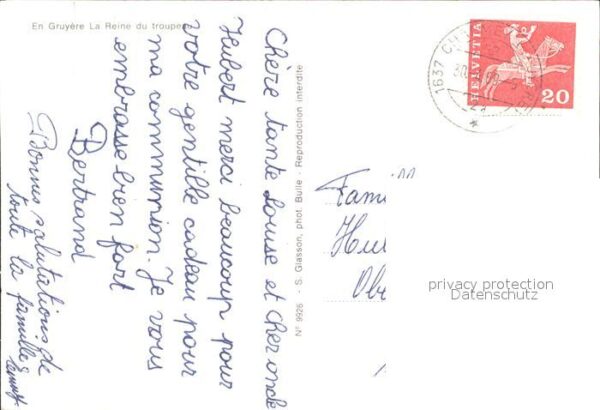 En Gruyère La Reine du troupeau
Chère tante Louise et cher oncle
Hubert merci beaucoup pour
votre gentille cadeau pour
ma communion. Je vous
embrasse bien fort
Bertrand
Bonnes salutations de
toute la famille
N° 9926 - S. Glasson, phot Bulle - Reproduction interdite
1637 CH
30.
HELVETIA
20
Fami
Hu
Ob
privacy protection
Datenschutz